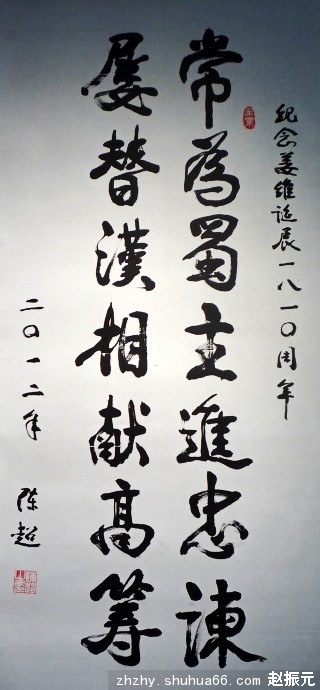 纪念姜維诞辰一八一〇周年
常為蜀主進忠諫
屡替漢相献高筹
二〇一二年 陈超
zhzhy.shuhua66.com 赵振元